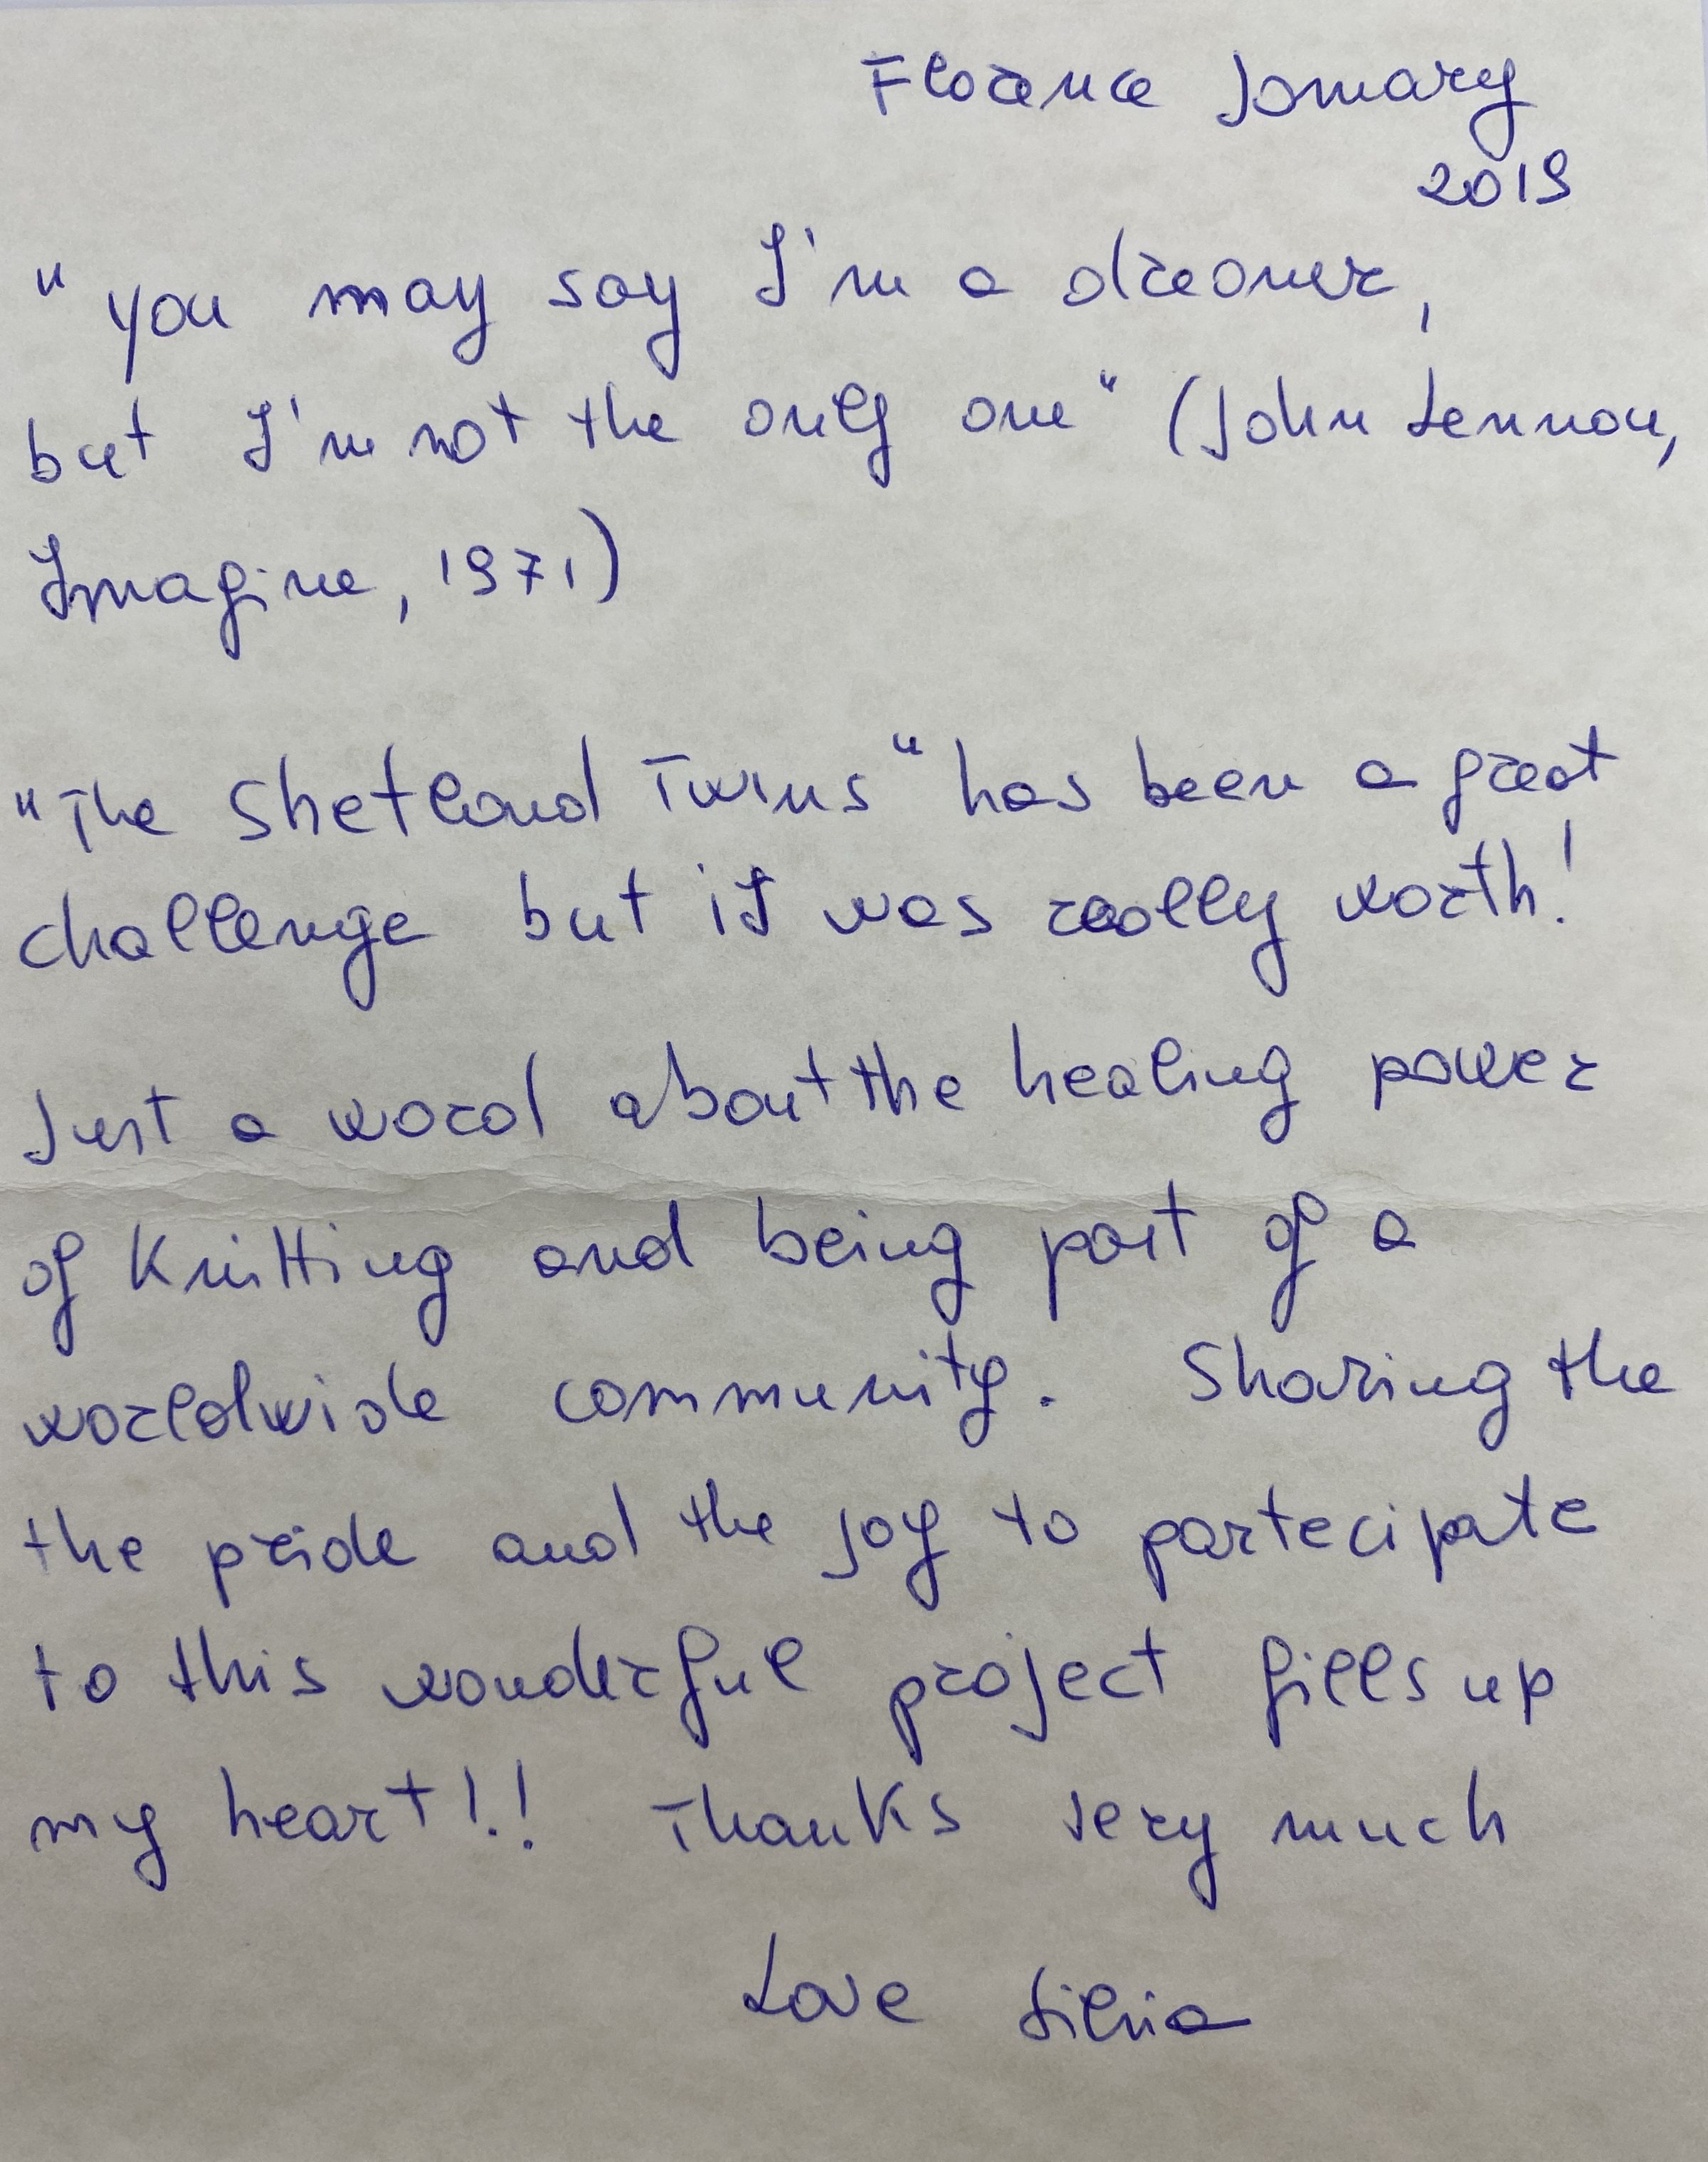 Florence January
2019
"you may say I'm a dreamer,
but I'm not the only one" (John Lennon,
Imagine, 1971)
"The Shetland Twins" has been a great
challenge but it was really worth!
Just a word about the healing power
of Knitting and being part of a
worldwide community. Sharing the
the pride and the joy to partecipate
to this wonderful project fills up
my heart!! Thanks very much
Love Silvia